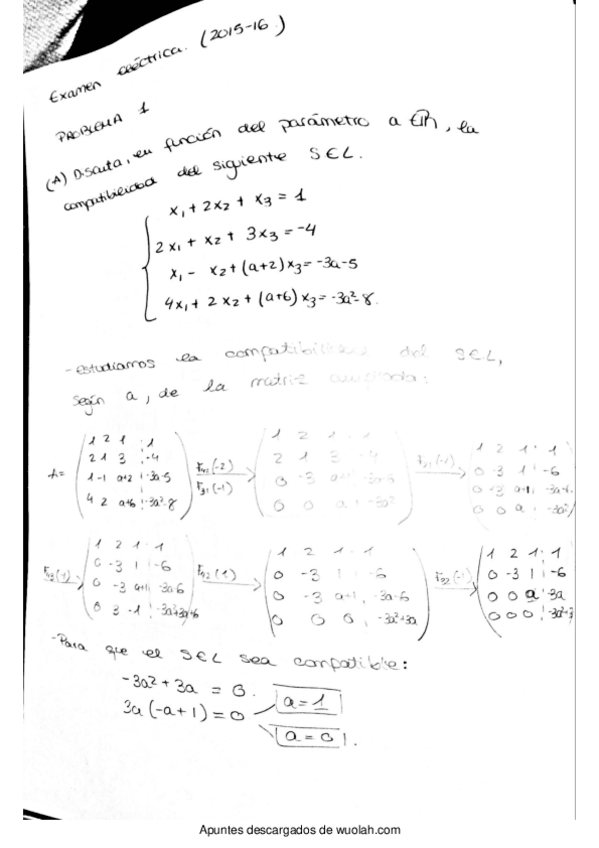 Examen eléctrica. (2015-16.)
PROBLEMA 1
(A) Discuta, en función del parámetro a ∈ R, la
compatibilidad del siguiente SEL.
x₁ + 2x₂ + x₃ = 1
2x₁ + x₂ + 3x₃ = -4
x₁ - x₂ + (a+2)x₃ = -3a-5
4x₁ + 2x₂ + (a+6)x₃ = -3a²-8.
- estudiamos la compatibilidad del SEL,
según a, de la matriz ampliada:
A = ( 1 2 1 | 1 ; 2 1 3 | -4 ; 1 -1 a+2 | -3a-5 ; 4 2 a+6 | -3a²-8 ) F₄₁(-2) F₃₁(-1) ( 1 2 1 | 1 ; 2 1 3 | -4 ; 0 -3 a+1 | -3a-6 ; 0 0 a | -3a² ) ( 1 2 1 | 1 ; 0 -3 1 | -6 ; 0 -3 a+1 | -3a-6 ; 0 0 a | -3a² )
( 1 2 1 | 1 ; 0 -3 1 | -6 ; 0 -3 a+1 | -3a-6 ; 0 3 -1 | -3a²+3a+6 ) ( 1 2 1 | 1 ; 0 -3 1 | -6 ; 0 -3 a+1 | -3a-6 ; 0 0 0 | -3a²+3a ) ( 1 2 1 | 1 ; 0 -3 1 | -6 ; 0 0 a | -3a ; 0 0 0 | -3a²+3
- Para que el SEL sea compatible:
-3a² + 3a = 0.
3a(-a+1) = 0
a = 1
a = 0.
Apuntes descargados de wuolah.com